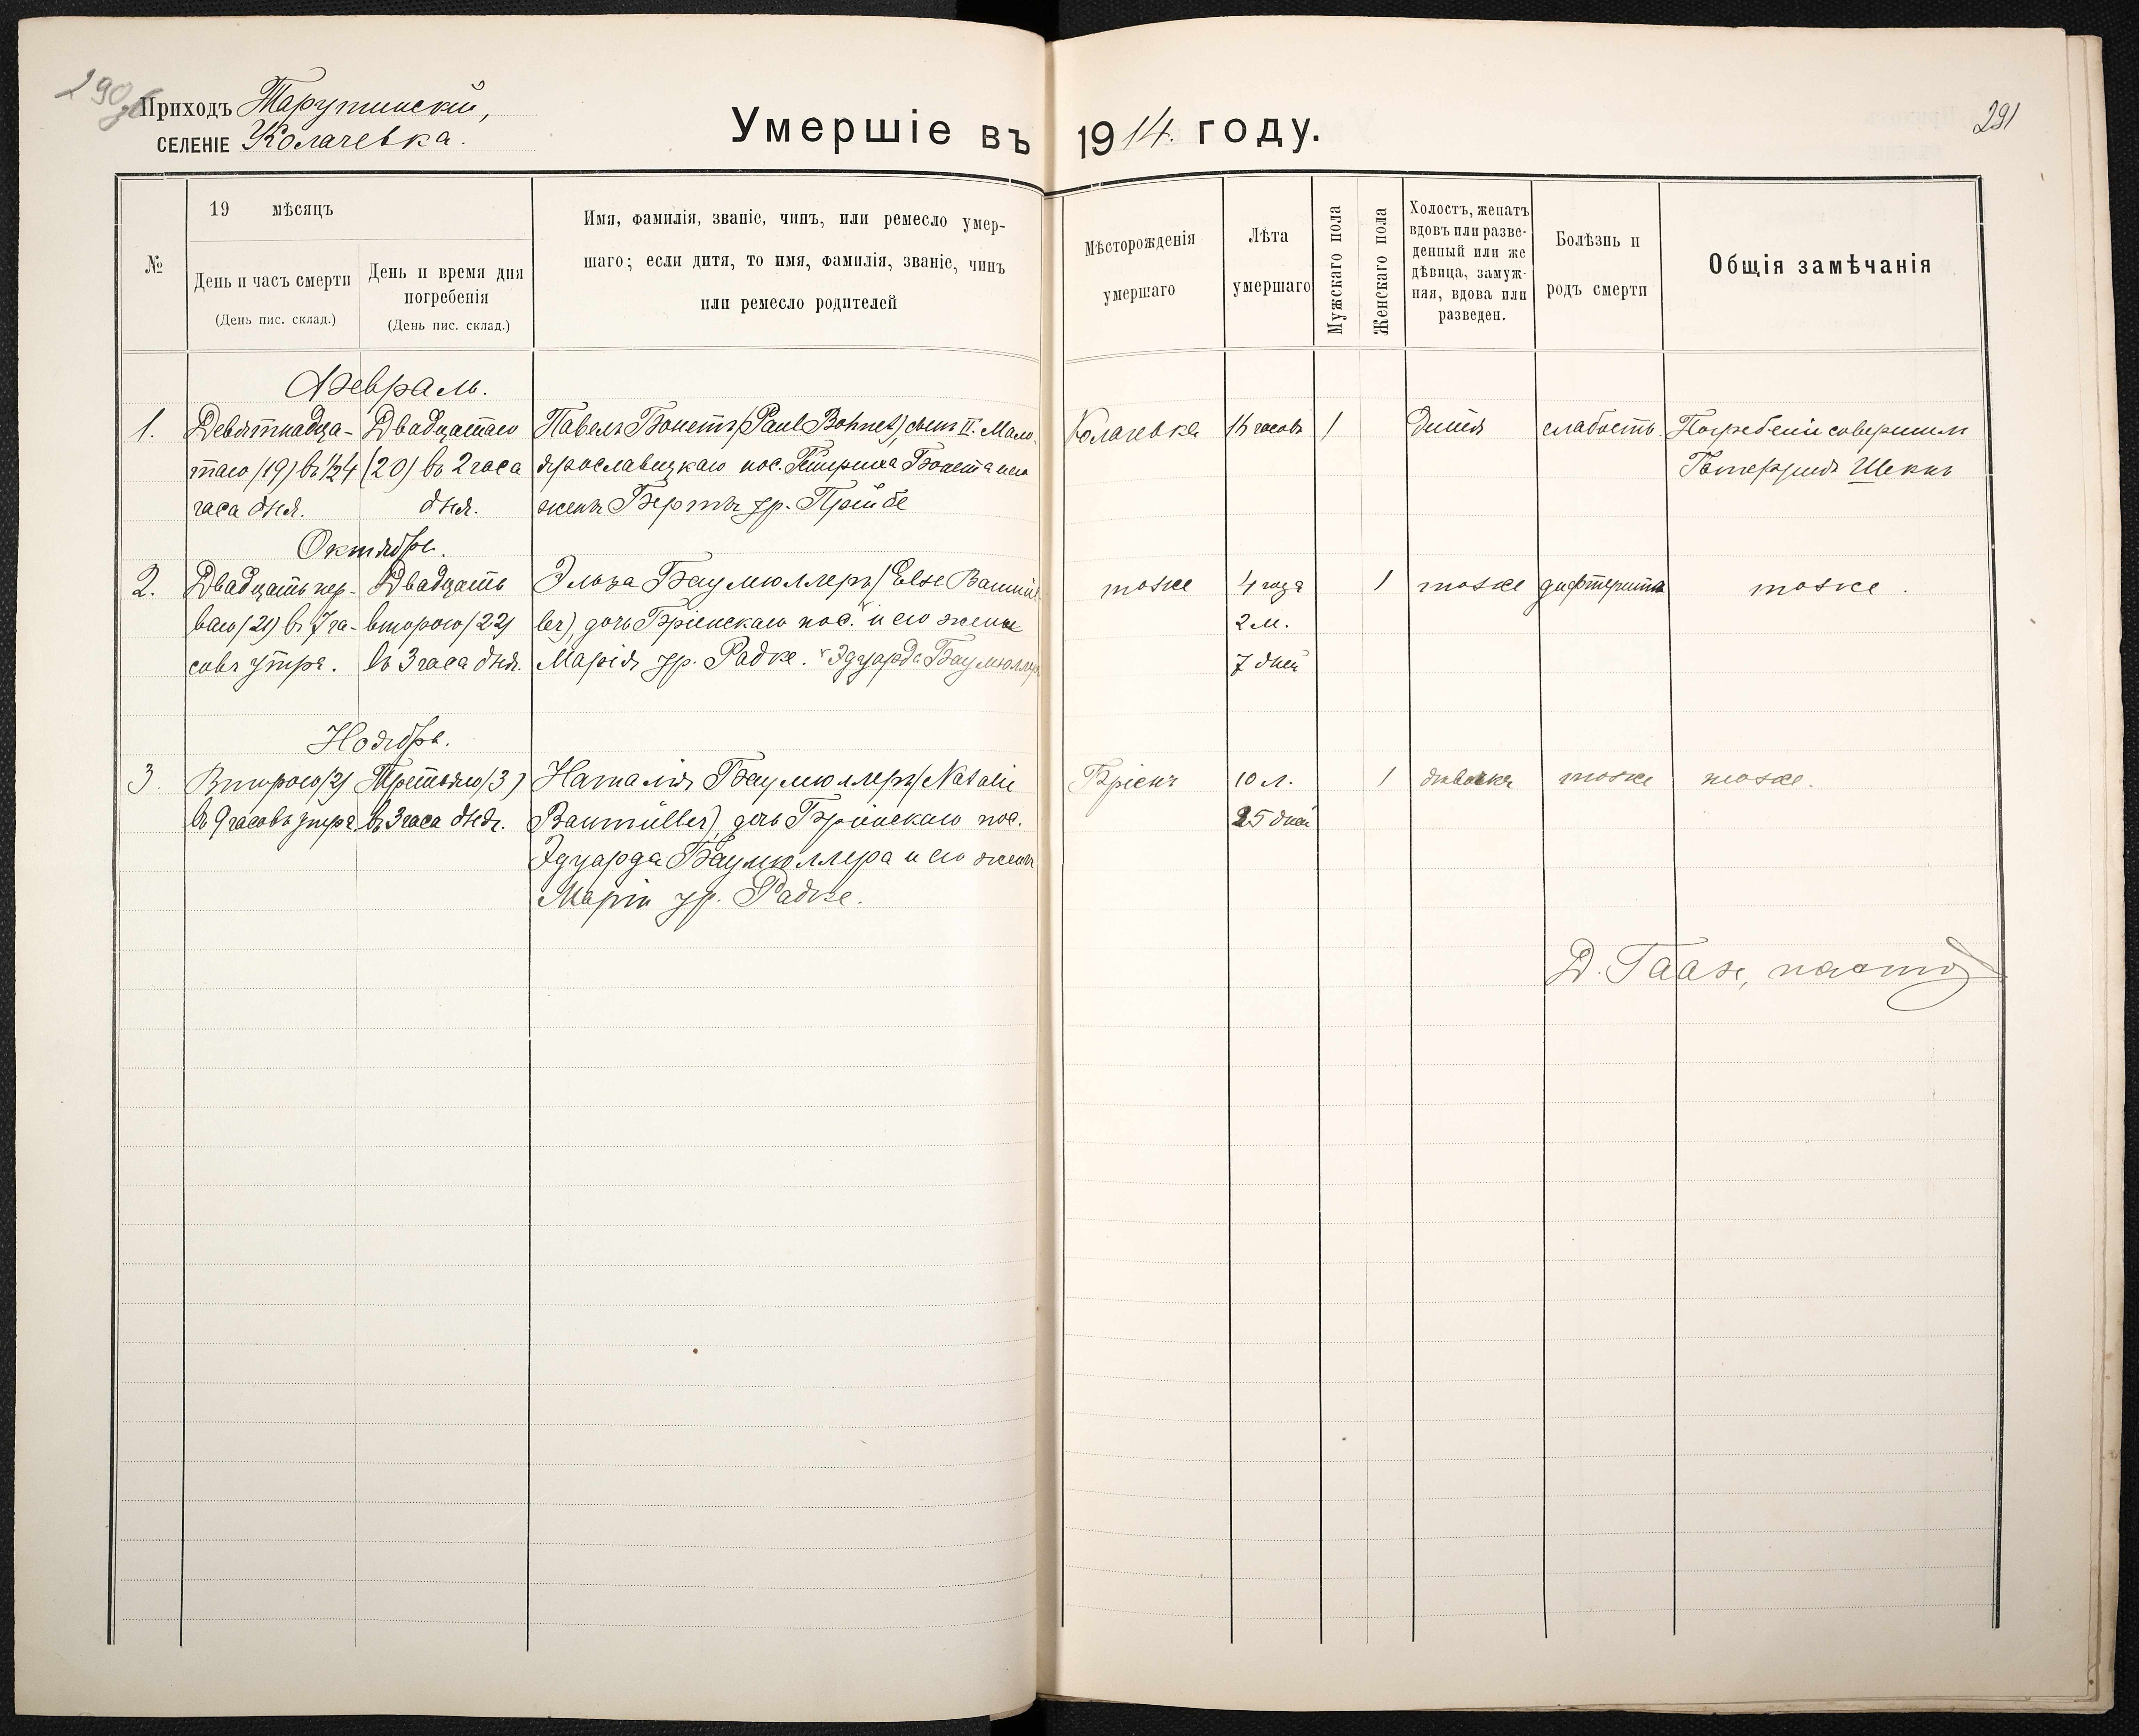 290об
Приходъ Тарутинскій,
СЕЛЕНІЕ Колачевка.
Умершіе въ 1914. году.
291
№
19 мѣсяцъ
День и часъ смерти
(День пис. склад.)
День и время дня
погребенія
(День пис. склад.)
Имя, фамилія, званіе, чинъ, или ремесло умер-
шаго; если дитя, то имя, фамилія, званіе, чинъ
или ремесло родителей
Мѣсторожденія
умершаго
Лѣта
умершаго
Мужскаго пола
Женскаго пола
Холостъ, женатъ
вдовъ или разве-
денный или же
дѣвица, замуж-
няя, вдова или
разведен.
Болѣзнь и
родъ смерти
Общія замѣчанія
Февраль.
1. Девятнадца- Двадцатаго Павелъ Бонетъ (Paul Bohnet), сынъ II. Мало- Колачевка часовъ 1 Дитя слабость. Погребеніе совершилъ
таго (19) въ ½4 (20) въ 2 часа ярославецкаго пос. Бонета и его Шеккъ
часа дня. дня. жены Берты ур. Прейбе
Октябрь.
2. Двадцать пер- Двадцать Эльза Баумюллеръ (Else Baumül- тоже 4 года 1 тоже дифтеритъ тоже.
ваго (21) въ 7 ча- второго (22) ler), дочь Бріенскаго пос. ˅ и его жены 2 м.
совъ утра. въ 3 часа дня. Марія ур. Радке. ˅ Эдуарда Баумюллера 7 дней
Ноябрь.
3. Второго (2) Третьяго (3) Наталія Баумюллеръ (Natalie Бріенъ 10 л. 1 дѣвочка тоже тоже.
въ 9 часовъ утра. въ 3 часа дня. Baumüller), дочь Бріенскаго пос. 25 дней
Эдуарда Баумюллера и его жены
Маріи ур. Радке.
Д. Гаазе, пасторъ